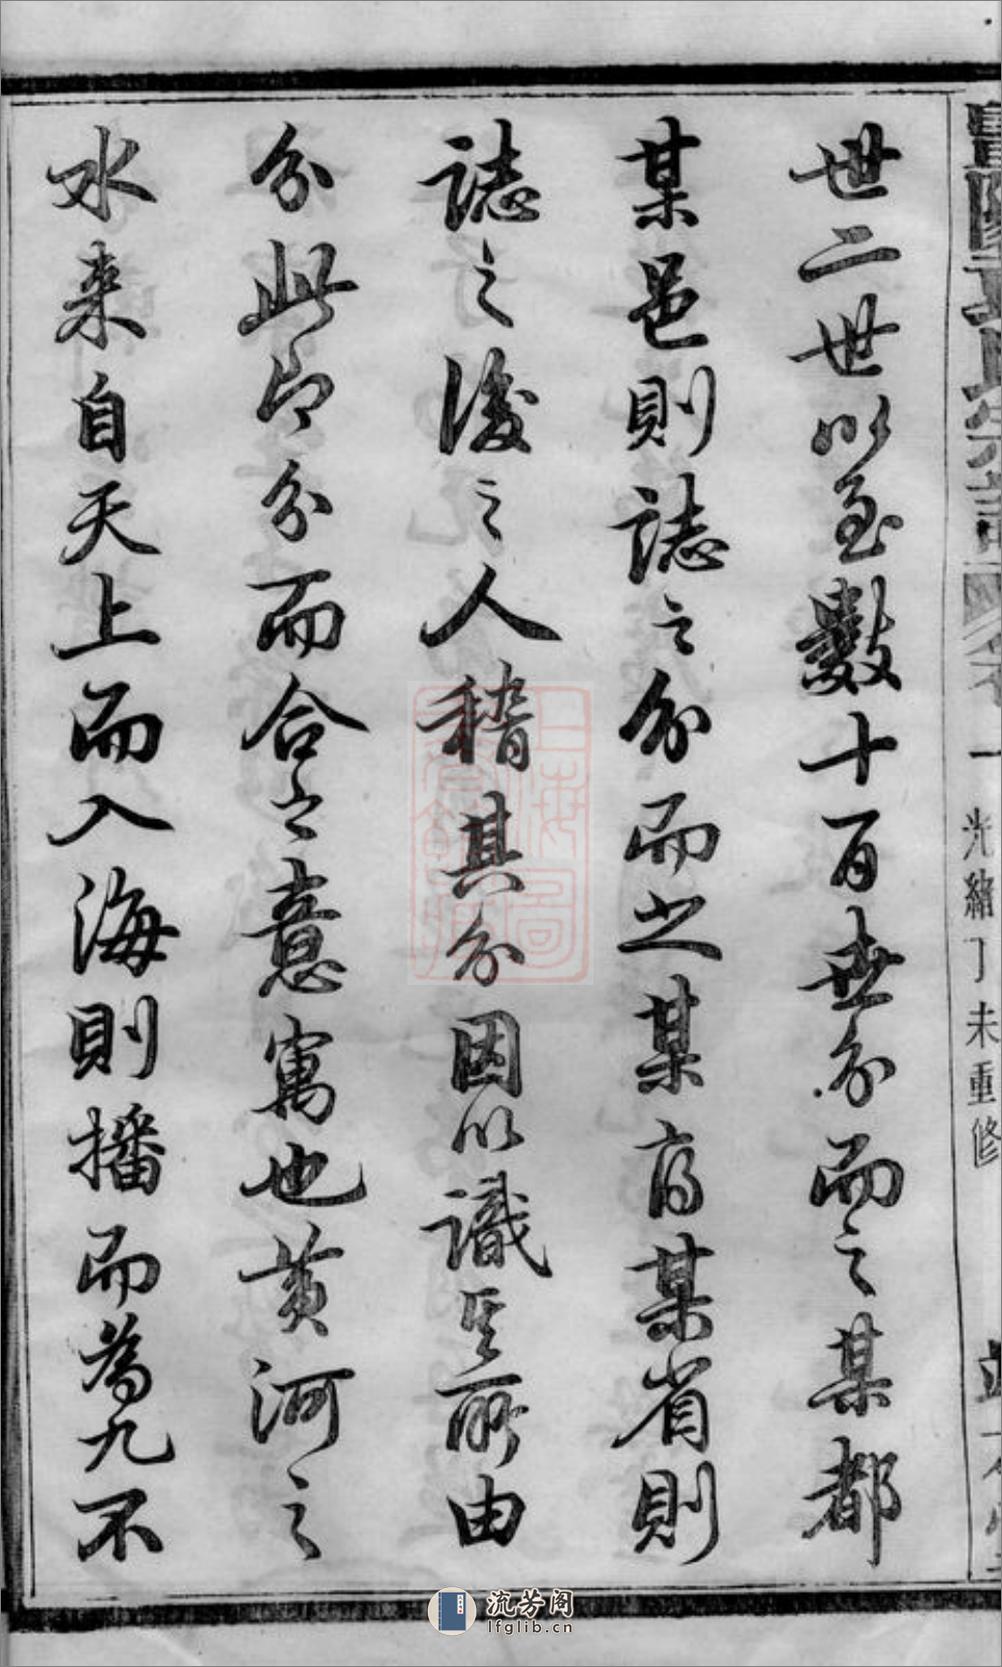 世二世以至數十百世分而之某都
某邑則誌之分而之某府某省則
誌之後之人稽其分因以識其所由
分此即分而合之意寓也黃河之
水来自天上而入海則播而為九不
光緒丁未重修
上海圖書館藏
流芳阁
lfglib.cn